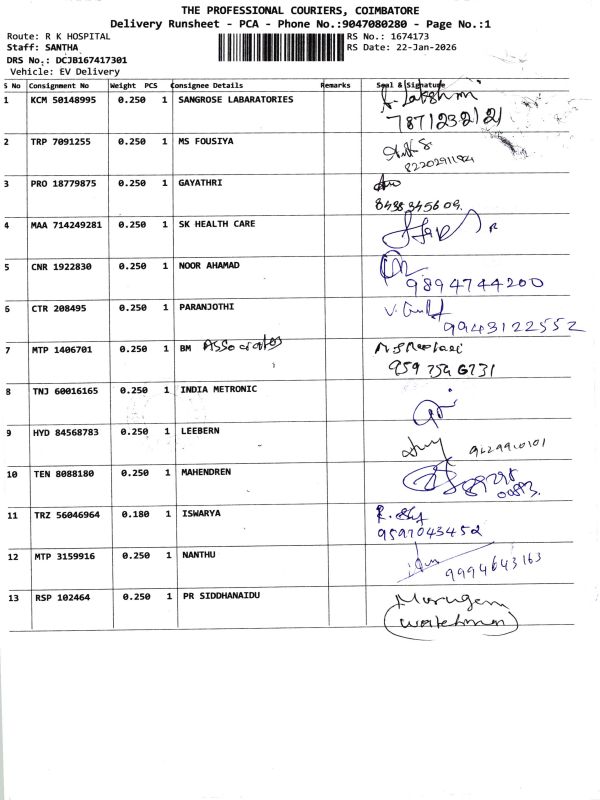 THE PROFESSIONAL COURIERS, COIMBATORE
Delivery Runsheet - PCA - Phone No.:9047080280 - Page No.:1
Route: R K HOSPITAL RS No.: 1674173
Staff: SANTHA RS Date: 22-Jan-2026
DRS No.: DCJB167417301
Vehicle: EV Delivery
S No Consignment No Weight PCS Consignee Details Remarks Seal & Signature
1 KCM 50148995 0.250 1 SANGROSE LABARATORIES Lakshmi
2 TRP 7091255 0.250 1 MS FOUSIYA
3 PRO 18779875 0.250 1 GAYATHRI
8438345609
4 MAA 714249281 0.250 1 SK HEALTH CARE
5 CNR 1922830 0.250 1 NOOR AHAMAD
9894744200
6 CTR 208495 0.250 1 PARANJOTHI
9943122552
7 MTP 1406701 0.250 1 BM Associates
959 754 6731
8 TNJ 60016165 0.250 1 INDIA METRONIC
9 HYD 84568783 0.250 1 LEEBERN
10 TEN 8088180 0.250 1 MAHENDREN
11 TRZ 56046964 0.180 1 ISWARYA
9597043452
12 MTP 3159916 0.250 1 NANTHU
9994643163
13 RSP 102464 0.250 1 PR SIDDHANAIDU Murugan
watchman